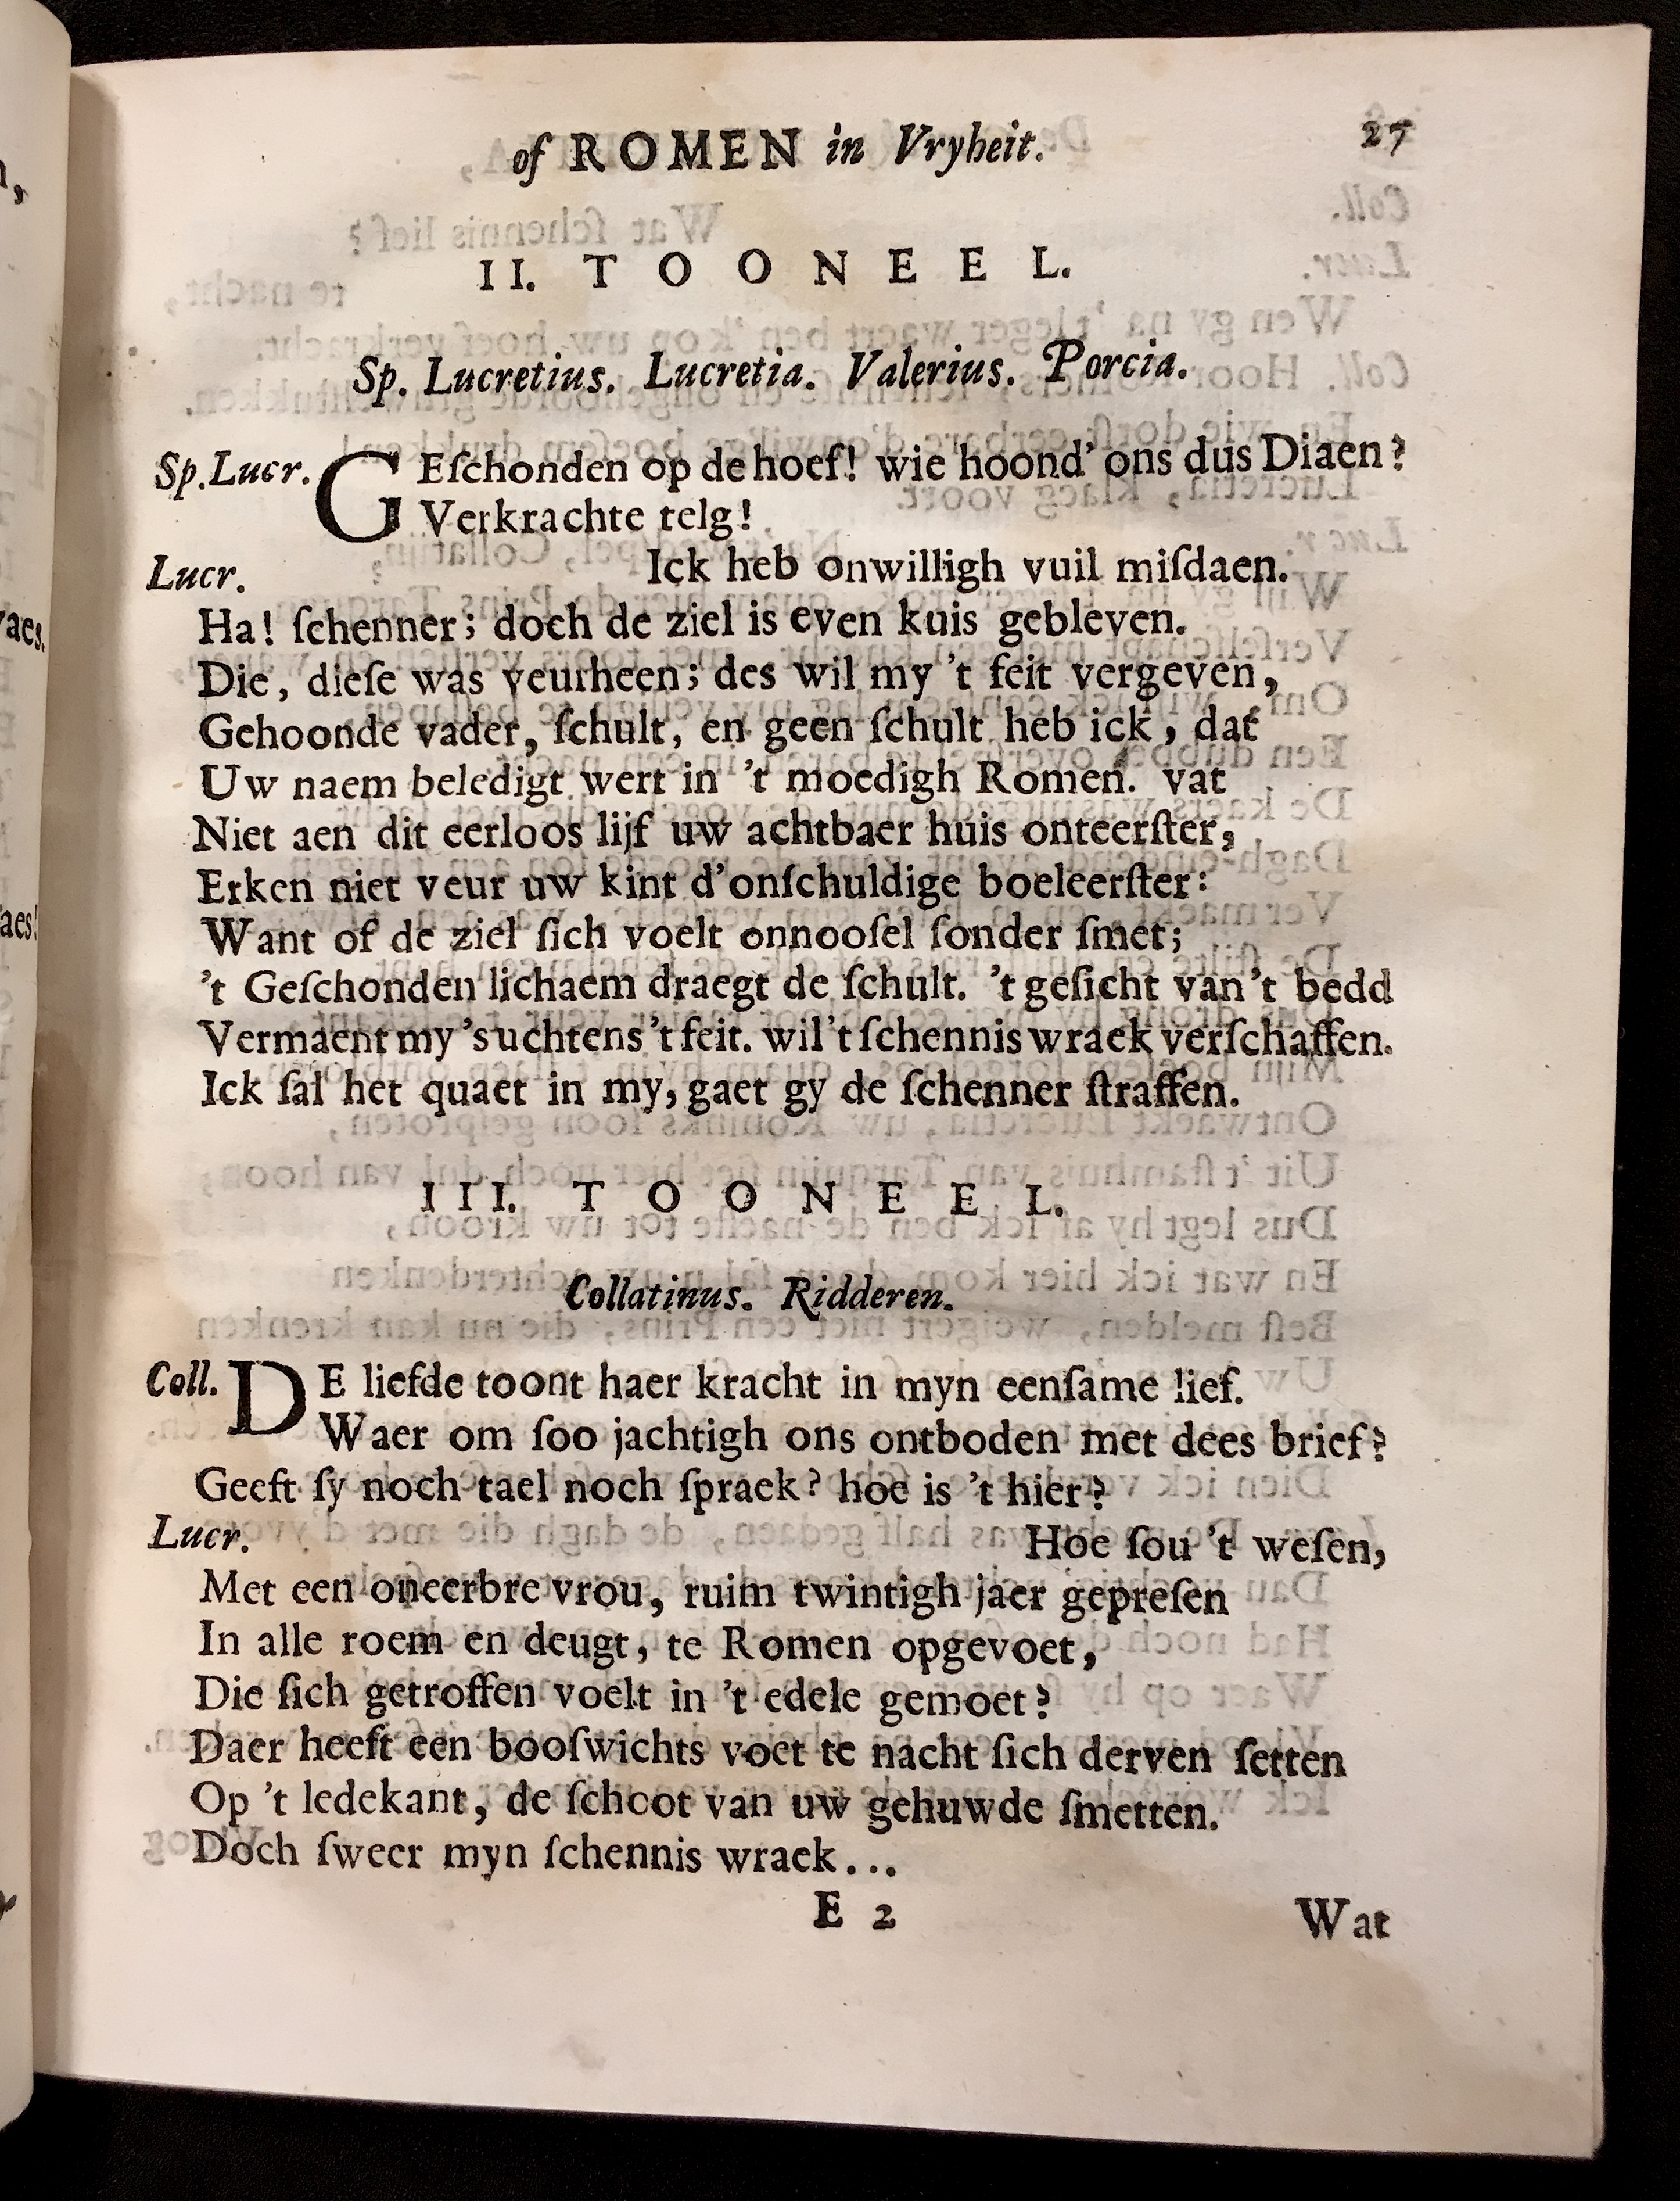 of ROMEN in Vryheit. 27
II. TOONEEL.
Sp. Lucretius. Lucretia. Valerius. Porcia.
Sp. Lucr. GEſchonden op de hoef! wie hoond' ons dus Diaen?
Verkrachte telg!
Lucr. Ick heb onwilligh vuil miſdaen.
Ha! ſchenner; doch de ziel is even kuis gebleven.
Die, dieſe was veurheen; des wil my 't feit vergeven,
Gehoonde vader, ſchult, en geen ſchult heb ick, dat
Uw naem beledigt wert in 't moedigh Romen. vat
Niet aen dit eerloos lijf uw achtbaer huis onteerſter,
Erken niet veur uw kint d'onſchuldige boeleerſter:
Want of de ziel ſich voelt onnooſel ſonder ſmet;
't Geſchonden lichaem draegt de ſchult. 't geſicht van 't bedd
Vermaent my 's uchtens 't feit. wil 't ſchennis wraek verſchaffen.
Ick ſal het quaet in my, gaet gy de ſchenner ſtraffen.
III. TOONEEL.
Collatinus. Ridderen.
Coll. DE liefde toont haer kracht in myn eenſame lief.
Waer om ſoo jachtigh ons ontboden met dees brief?
Geeft ſy noch tael noch ſpraek? hoe is 't hier?
Lucr. Hoe ſou 't weſen,
Met een oneerbre vrou, ruim twintigh jaer gepreſen
In alle roem en deugt, te Romen opgevoet,
Die ſich getroffen voelt in 't edele gemoet?
Daer heeft een booſwichts voet te nacht ſich derven ſetten
Op 't ledekant, de ſchoot van uw gehuwde ſmetten.
Doch ſweer myn ſchennis wraek...
E 2 Wat